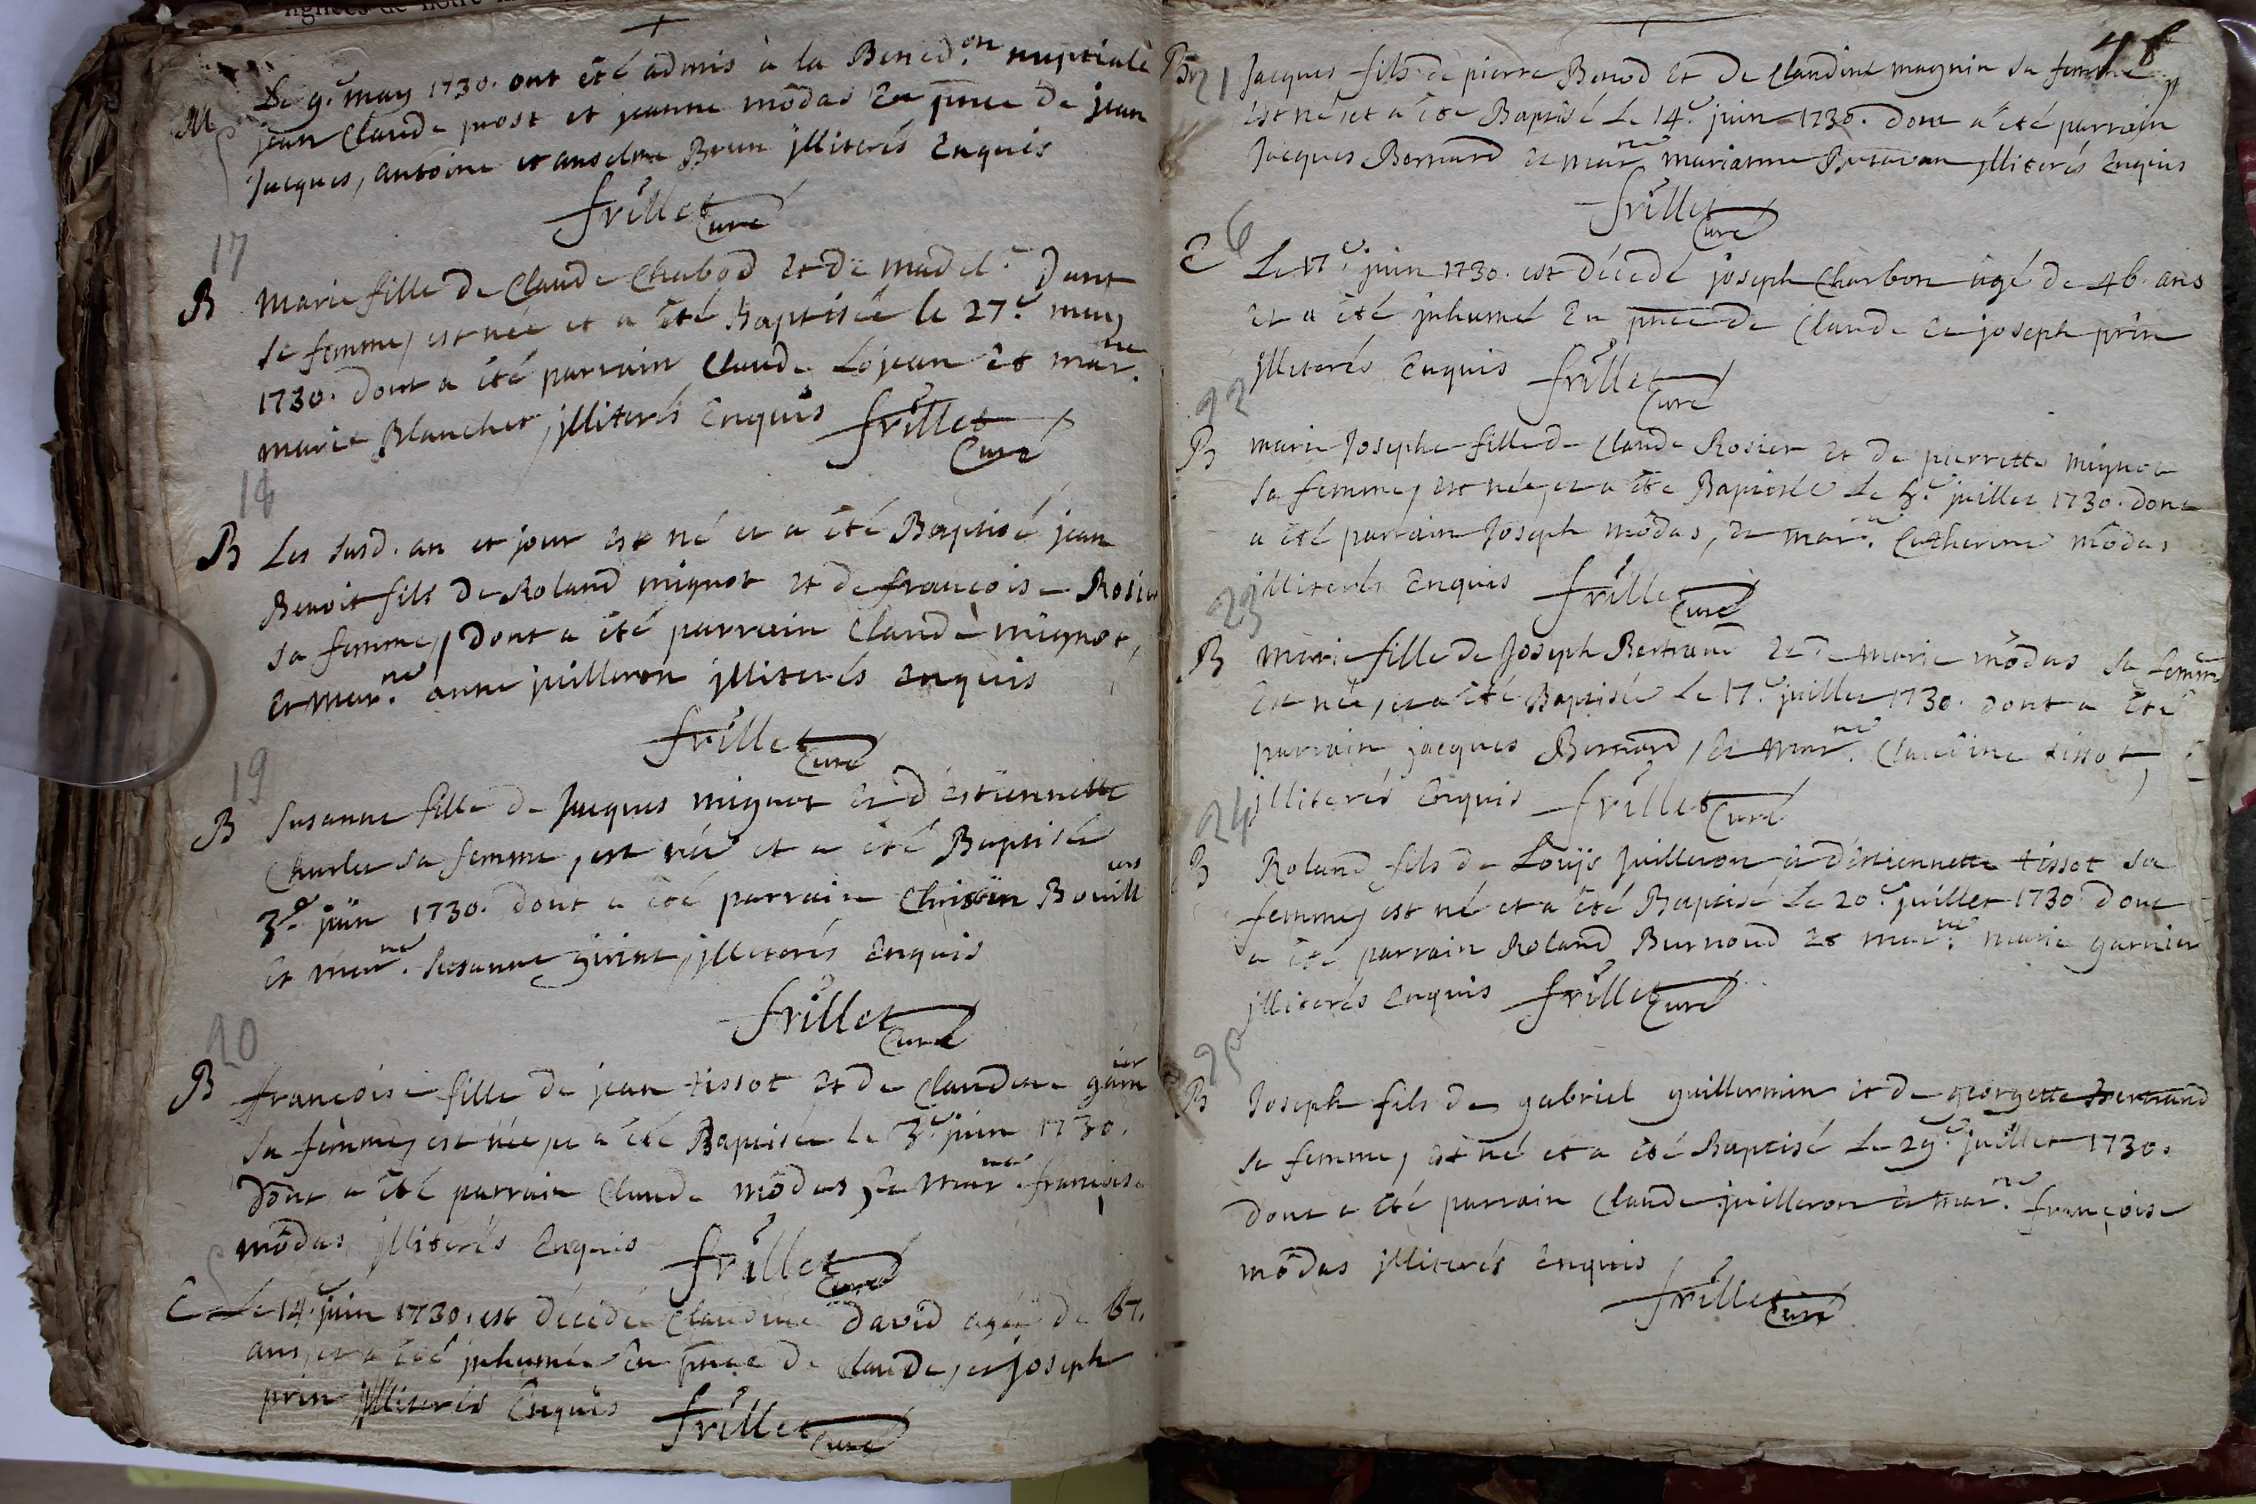 Le 9.e may 1730. ont été admis à la Bened.on nuptiale
M jean Claude prost et jeanne môdas En pnce de jean
jacques, antoine et anselme Brun jlliterés Enquis
frillet Curé
17
B Marie fille De Claude Chabod Et De madel.e Dant
sa femme, est née et a été Baptisée le 27.e may
1730. Dont a été parrain Claude Lojean et mar.ne
marie Blanchet, jlliterés Enquis frillet Curé
18
B Les susd. an et jour est né et a été Baptisé jean
Benoit fils De Roland mignot et de françoise Rosier
sa femme, Dont a été parrain Claude mignot,
et mar.ne anne juilleron jlliterés enquis
frillet Curé
19
B Susanne fille de Jacques mignot et d'estiennette
Charles sa femme, est née et a été Baptisée
3.e juin 1730. dont a été parrain Bouill
et mar.ne Susanne jlliterés Enquis
frillet Curé
20
B françoise fille de jean tissot et de Claudine garnier
sa femme, est née, et a été Baptisée le 3.e juin 1730.
Dont a été parrain Claude môdas, et mar.ne françoise
môdas jlliterés Enquis frillet Curé
C Le 14.e juin 1730. est décedée Claudine David agée de 67.
ans, et a été jnhumée En pnce de Claude, et Joseph
prin jlliterés Enquis frillet Curé
B 21 Jacques fils de pierre Benod et De Claudine magnin sa femme
est né, et a été Baptisé le 14.e juin 1730. Dont a été parrain
Jacques Bernard et mar.ne marianne jlliterés Enquis
frillet Curé
6
C Le 17.e juin 1730. est décedé joseph Charbon agé de 46. ans
et a été jnhumé En pnce de Claude et joseph prin
jlliterés Enquis frillet Curé
22
B marie Josephe fille de Claude Rosier et de pierrette mignot
sa femme, est née, et a été Baptisée Le juillet 1730. dont
a été parrain Joseph môdas, et mar.ne Catherine môdas
jlliterés Enquis frillet Curé
23
B Marie fille de Joseph Bertrand et de marie môdas sa femme
Est née, et a été Baptisée Le 17.e juillet 1730. dont a été
parrain jacques Bernard, et mar.ne Claudine tissot,
jlliterés Enquis frillet Curé
24
B Roland fils de Louis juilleron et d'estiennette tissot sa
femme, est né et a été Baptisé Le 20.e juillet 1730. Dont
a été parrain Roland Burnoud et mar.ne marie garnier
jlliterés Enquis frillet Curé
25
B Joseph fils de gabriel guillermin et de georgette Bertrand
sa femme, est né et a été Baptisé Le 29.e juillet 1730.
Dont a été parrain Claude juilleron et mar.ne françoise
môdas jlliterés enquis
frillet Curé